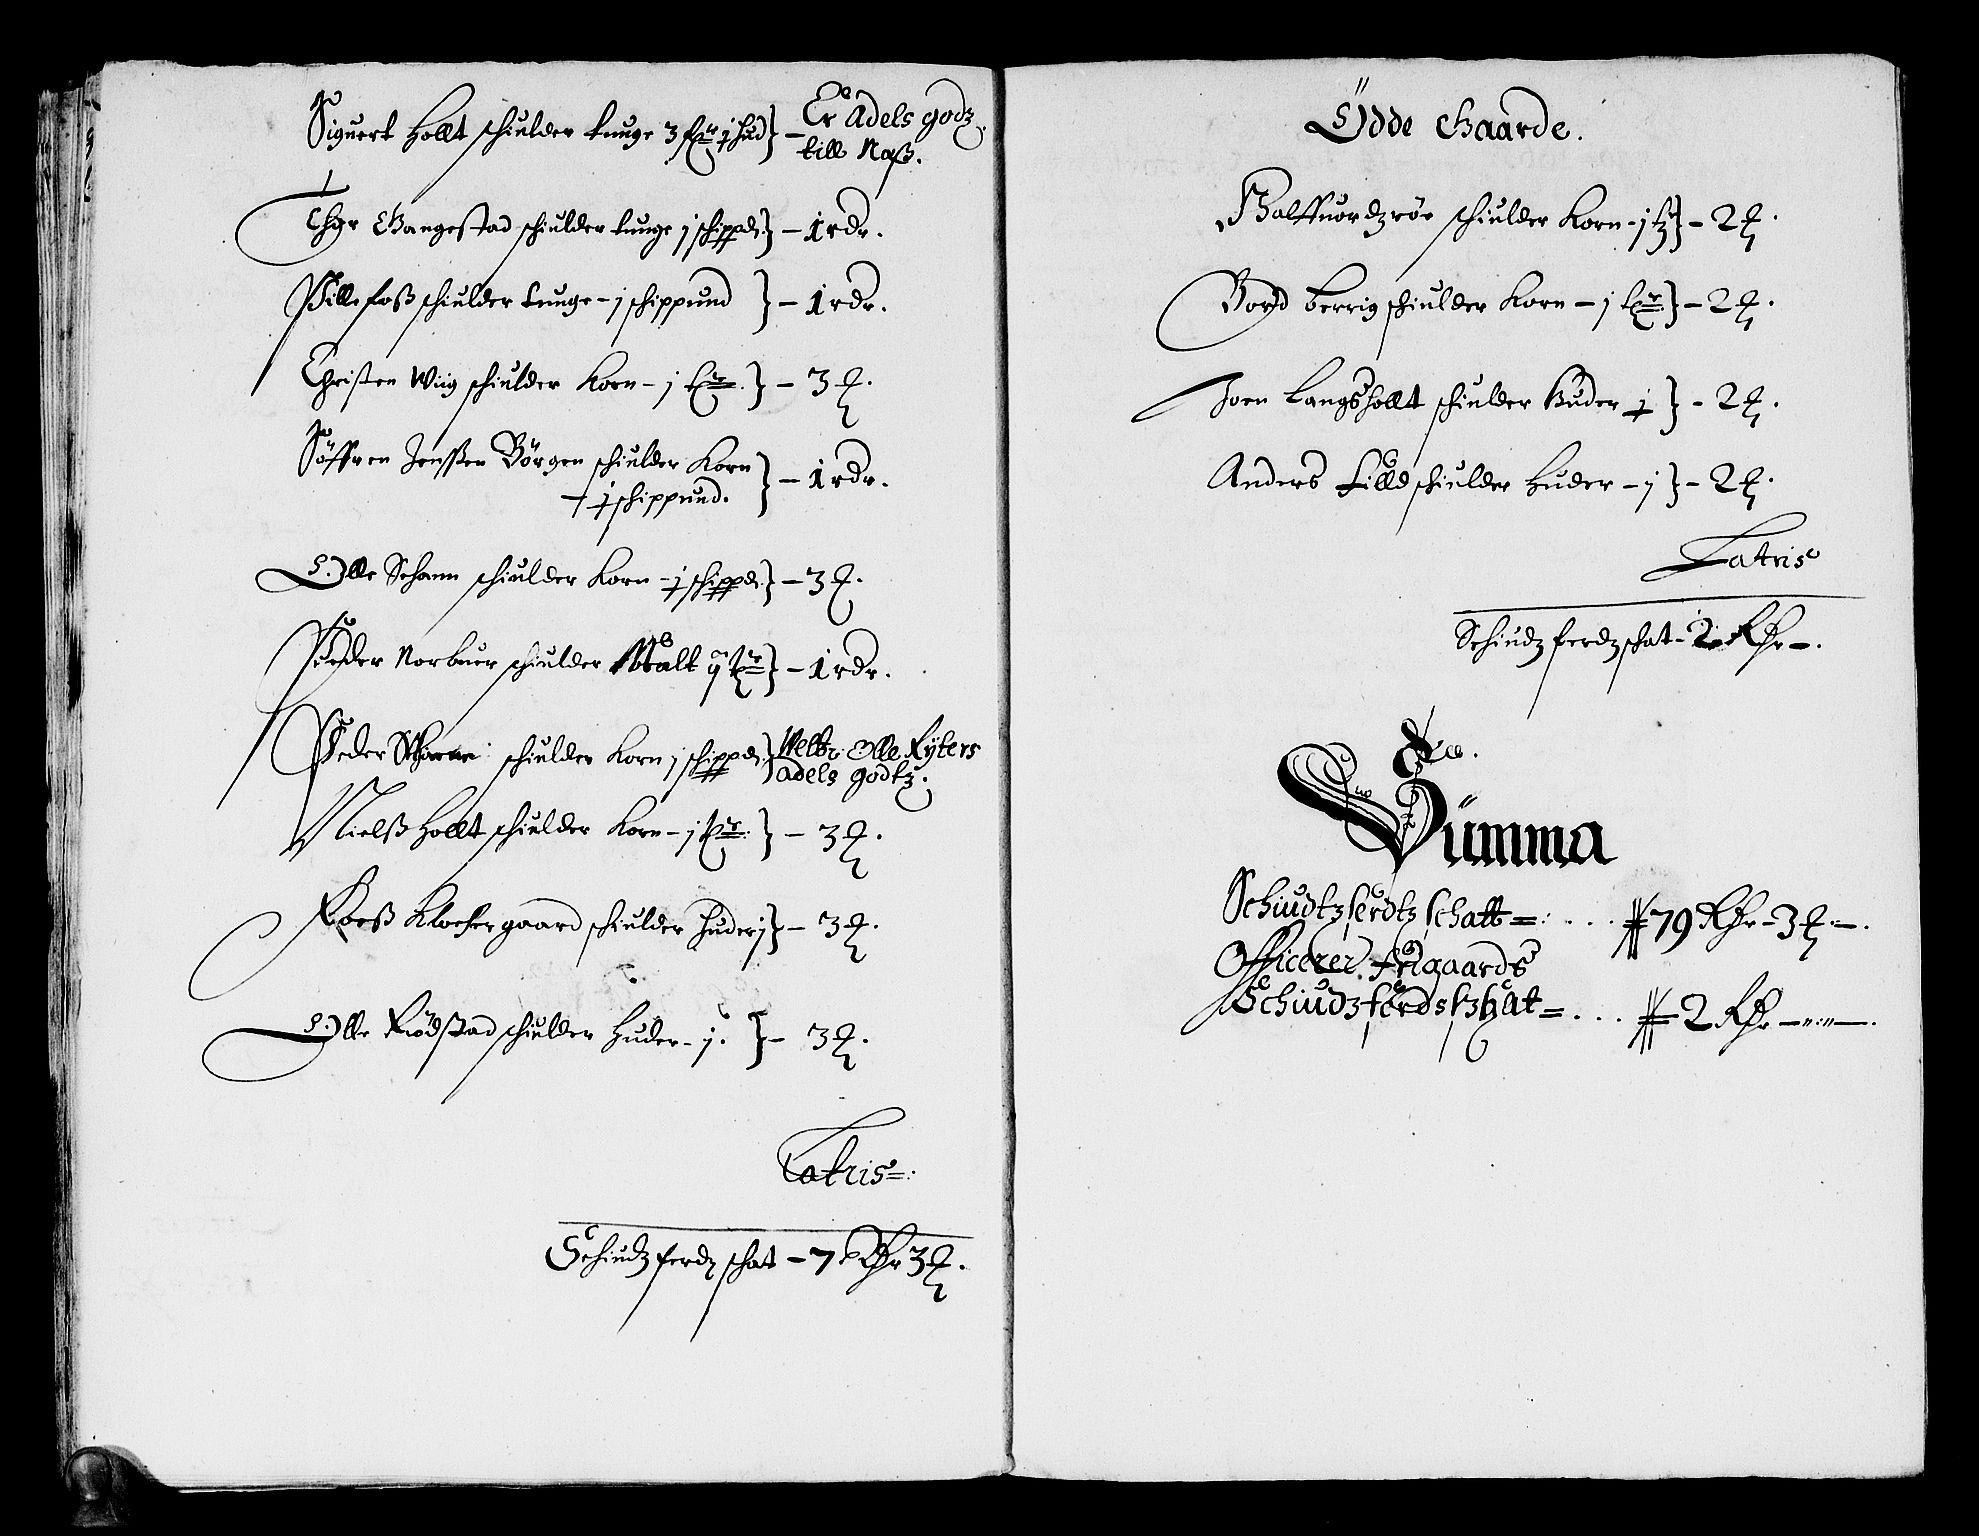 Siguert Hollt schiulder tunge 3 fr 1 hud } – Er Adels godz
till Naß.
Thor Gangestad schiulder tunge j schippd } – 1 rdr.
Pillefoß schiulder tunge – j schippund } – 1 rdr.
Christen Wiig schiulder Korn – j } – 3
Söffren Jenssen Börgen schiulder Korn
– j schippund. } – 1 rdr.
Olle Schann schiulder Korn – j schippd } – 3
Peder Norbuer schiulder Malt ij } – 1 rdr.
Peder schiulder Korn j schippd } Welbr: Olle Ryters
adels godtz.
Nielß Hollt schiulder Korn – j } – 3
Roeß Klockergaard schiulder Huder j } – 3
Olle Rödstad schiulder Huder – j. } – 3
Latris
Schiudz ferdz schat – 7 Rdr 3
Ödde Gaarde.
Halffuordzrör schiulder Korn – j } – 2
Bord berrig schiulder Korn – j } – 2
Joen Langshollt schiulder Huder j } – 2
Anders Lilld schiulder Huder – j } – 2
Latris
Schiudz ferdz schat – 2 Rdr –.
Summa
Schiudtz ferdtz schatt = 79 Rdr – 3 –.
Officerer frigaards
Schiudz ferds schat = 2 Rdr